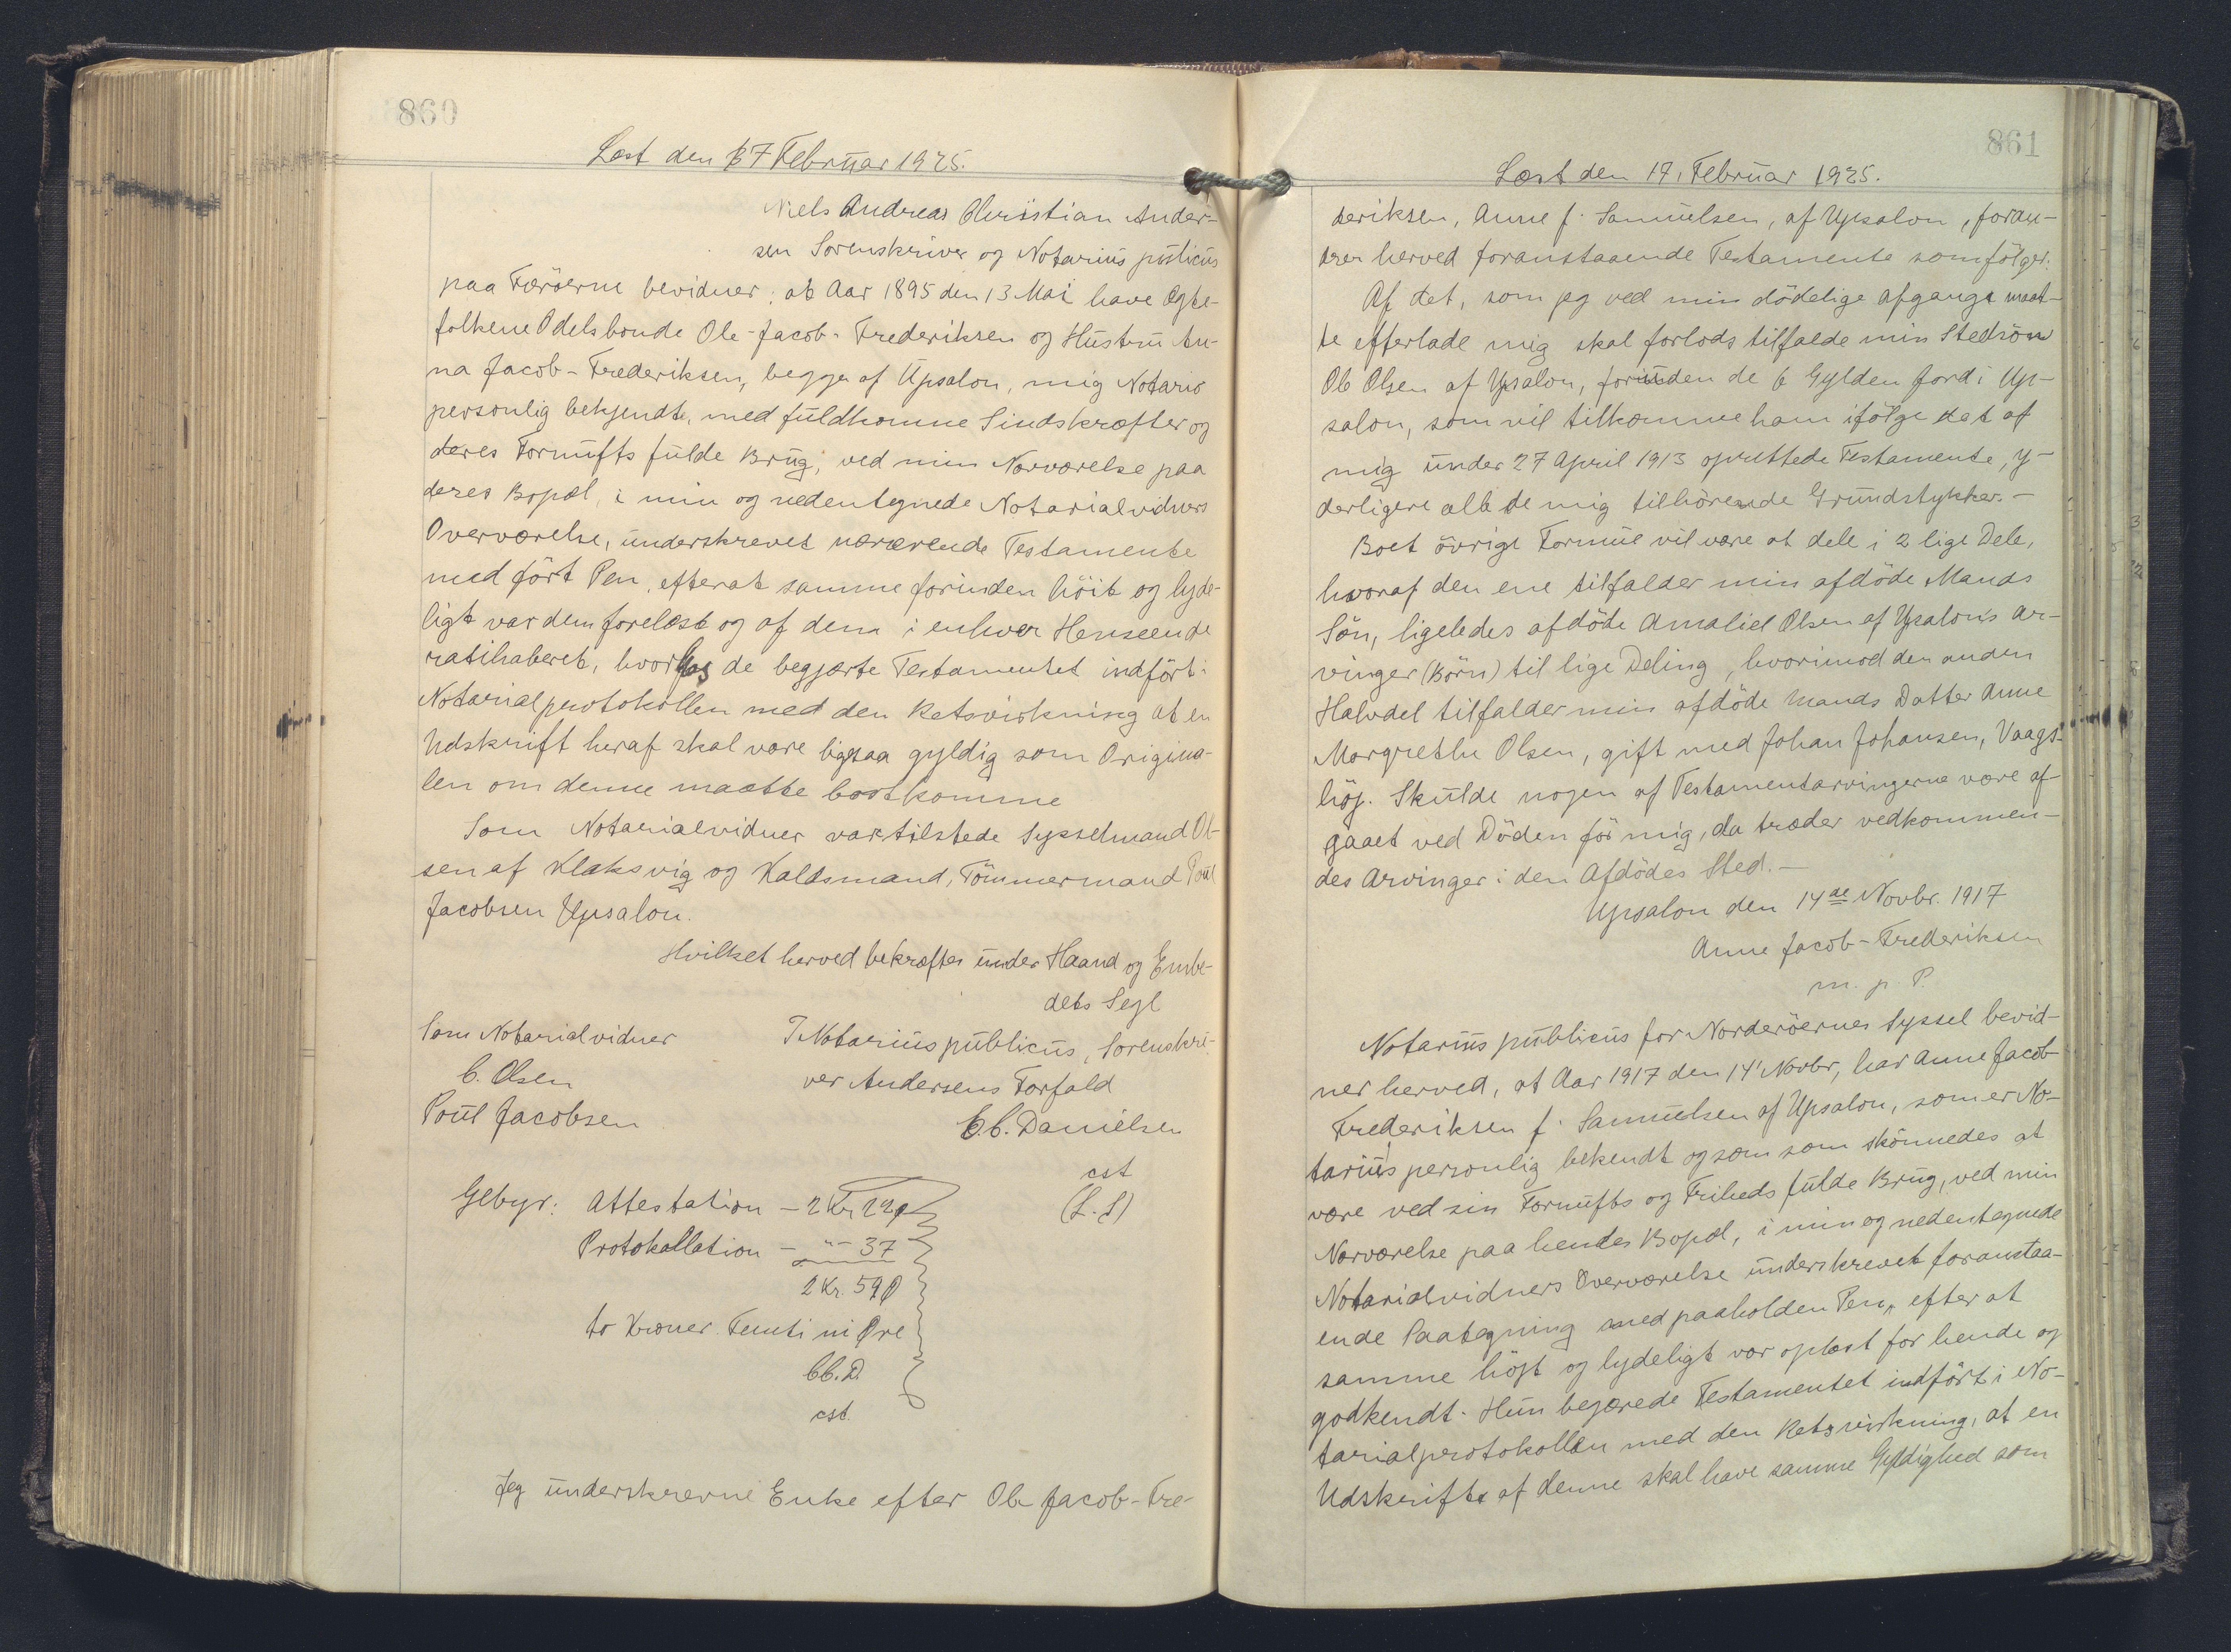 860
Læst den 17 Februar 1925.
Niels Andreas Christian Ander-
sen Sorenskriver og Notarius publicus
paa Færöerne bevidner; at Aar 1895 den 13 Mai have Ægte-
folkene Odelsbonde Ole-Jacob-Frederiksen og Hustru An-
na Jacob-Frederiksen, begge af Upsalon, mig Notario
personlig bekjendte, med fuldkomne Sindskræfter og
deres Fornufts fulde Brug, ved min Nærværelse paa
deres Bopæl, i min og nedentegnede Notarialvidners
Overværelse, underskrevet nærærende Testamente
med fört Pen, efterat samme forinden höit og lyde-
ligt var dem forelæst og af dem i enhver Henseende
ratihaberet, hvorhos de begjærte Testamentet indfört i
Notarialprotokollen med den Retsvirkning at en
Udskrift heraf skal være ligesaa gyldig som Origina-
len om denne maatte bortkomme
Som Notarialvidner var tilstede Sysselmand Ol-
sen af Klaksvig og Kaldsmand, Tömmermand Poul
Jacobsen Upsalon.
Hvilket herved bekræftes under Haand og Embe-
dets Segl
Som Notarialvidner
C. Olsen
Poul Jacobsen
I Notarius publicus, Sorenskri-
ver Andersens Forfald
C.C. Danielsen
cst
(L.S)
Gebyr: Attestation - 2 Kr 22 Ø
Protokollation - " - 37
2 Kr. 59 Ø
to Kroner Femti ni Øre
CC.D.
cst.
Jeg underskrevne Enke efter Ole Jacob-Fre-
861
Læst den 17. Februar 1925.
deriksen, Anne f. Samuelsen, af Upsalon, foran-
drer herved foranstaaende Testamente somfölger.
Af det, som jeg ved min dödelige afgang maat-
te efterlade mig skal forlods tilfalde min Stedsön
Ole Olsen af Upsalon, foruden de 6 Gylden Jord i Up-
salon, som vil tilkomme ham ifölge det af
mig under 27 April 1913 oprettede Testamente, y-
derligere alle de mig tilhörende Grundstykker. -
Boet övrige Formue vil være at dele i 2 lige Dele,
hvoraf den ene tilfalder min afdöde Mands
Sön, ligeledes afdöde Amaliel Olsen af Upsalon's ar-
vinger (Börn) til lige Deling, hvorimod den anden
Halvdel tilfalder min afdöde Mands Datter Anne
Margrethe Olsen, gift med Johan Johansen, Vaags-
höj. Skulde nogen af Testamentarvingerne være af-
gaaet ved Döden för mig, da træder vedkommen-
des Arvinger i den Afdödes Sted. -
Upsalon den 14de Novbr. 1917
Anne Jacob-Frederiksen
m. p P.
Notarius publicus for Norderöernes Syssel bevid-
ner herved, at Aar 1917 den 14' Novbr, har Anne Jacob
Frederiksen f. Samuelsen af Upsalon, som er No-
tarius personlig bekendt og som som skönnedes at
være ved sin Fornufts og Friheds fulde Brug, ved min
Nærværelse paa hendes Bopæl, i min og nedentegnede
Notarialvidners Overværelse underskrevet foranstaa-
ende Paategning med paaholden Pen, efter at
samme höjt og lydeligt var oplæst for hende og
godkendt. Hun begærede Testamentet indfört i No-
tarialprotokollen med den Retsvirkning, at en
Udskrift af denne skal have samme Gyldighed som